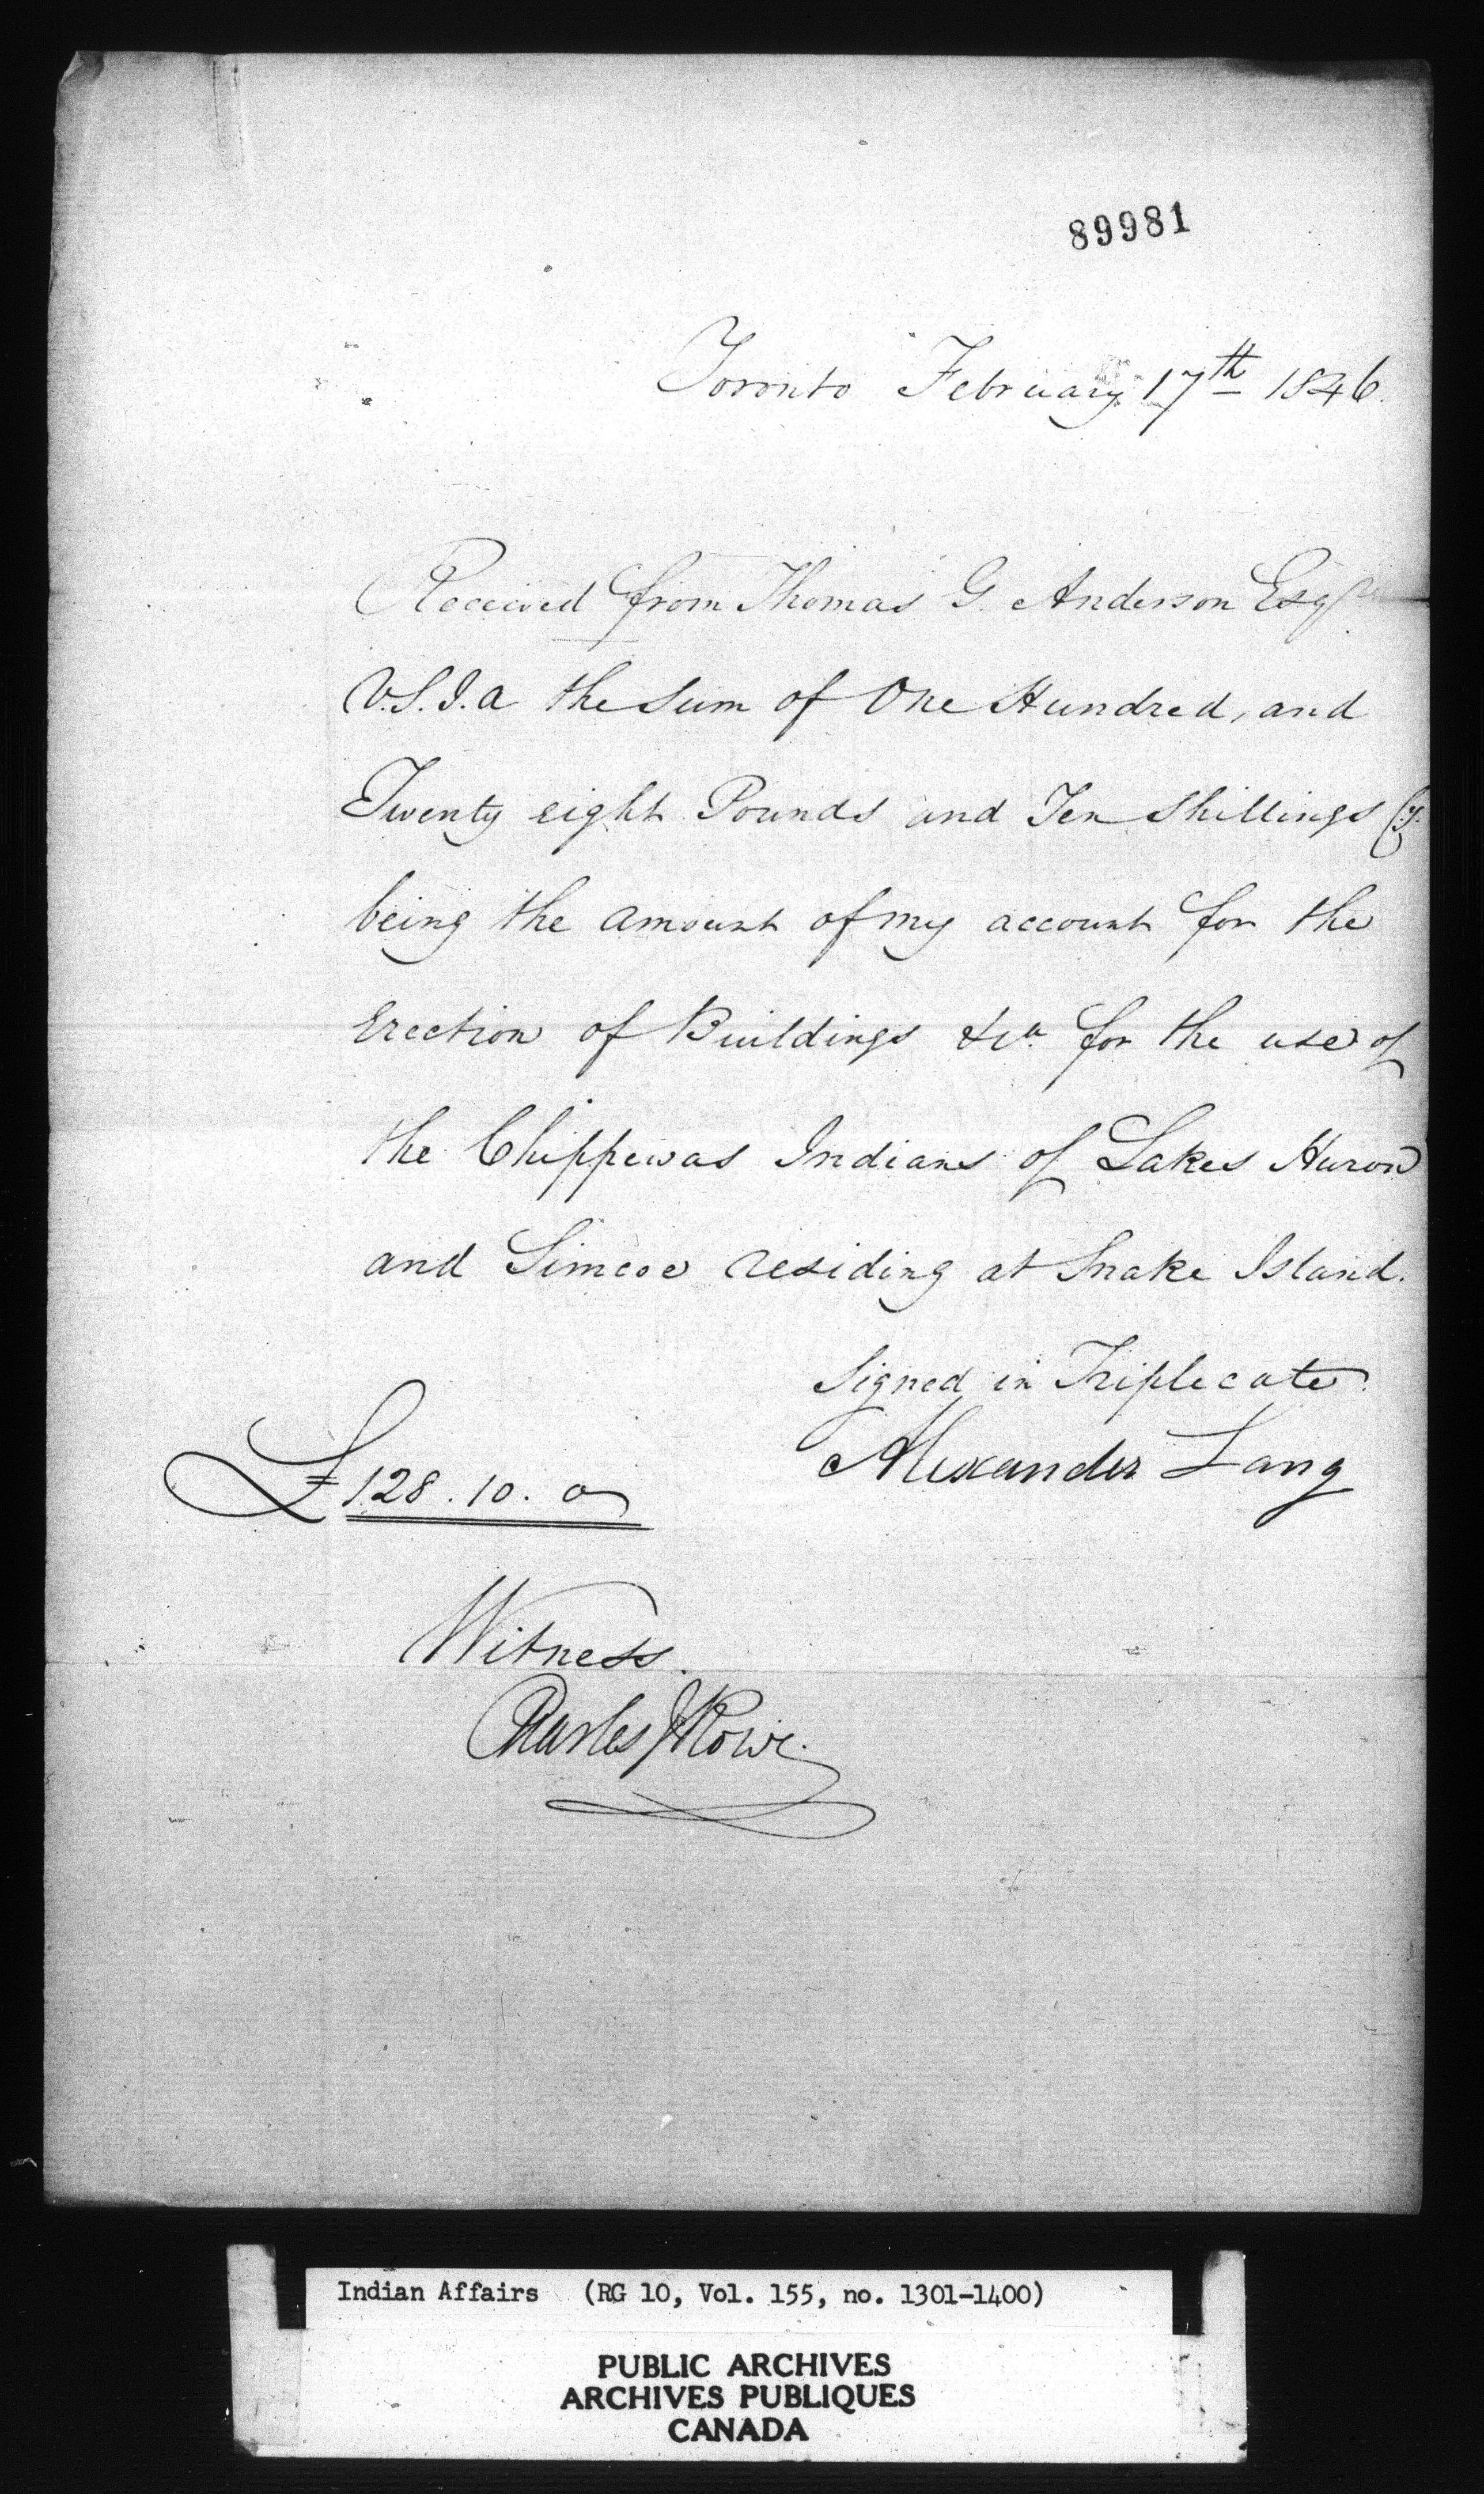 89981
Toronto February 17th 1846.
Received from Thomas G. Anderson Esqre
V.S.I.a the Sum of One Hundred, and
Twenty eight Pounds and Ten Shillings Cy.
being the amount of my account for the
Erection of Buildings &ca for the use of
the Chippewas Indians of Lakes Huron
and Simcoe residing at Snake Island.
Signed in Triplecate.
Alexander Lang
£128.10.0
Witness.
Charles J Rowe.
Indian Affairs (RG 10, Vol. 155, no. 1301-1400)
PUBLIC ARCHIVES
ARCHIVES PUBLIQUES
CANADA